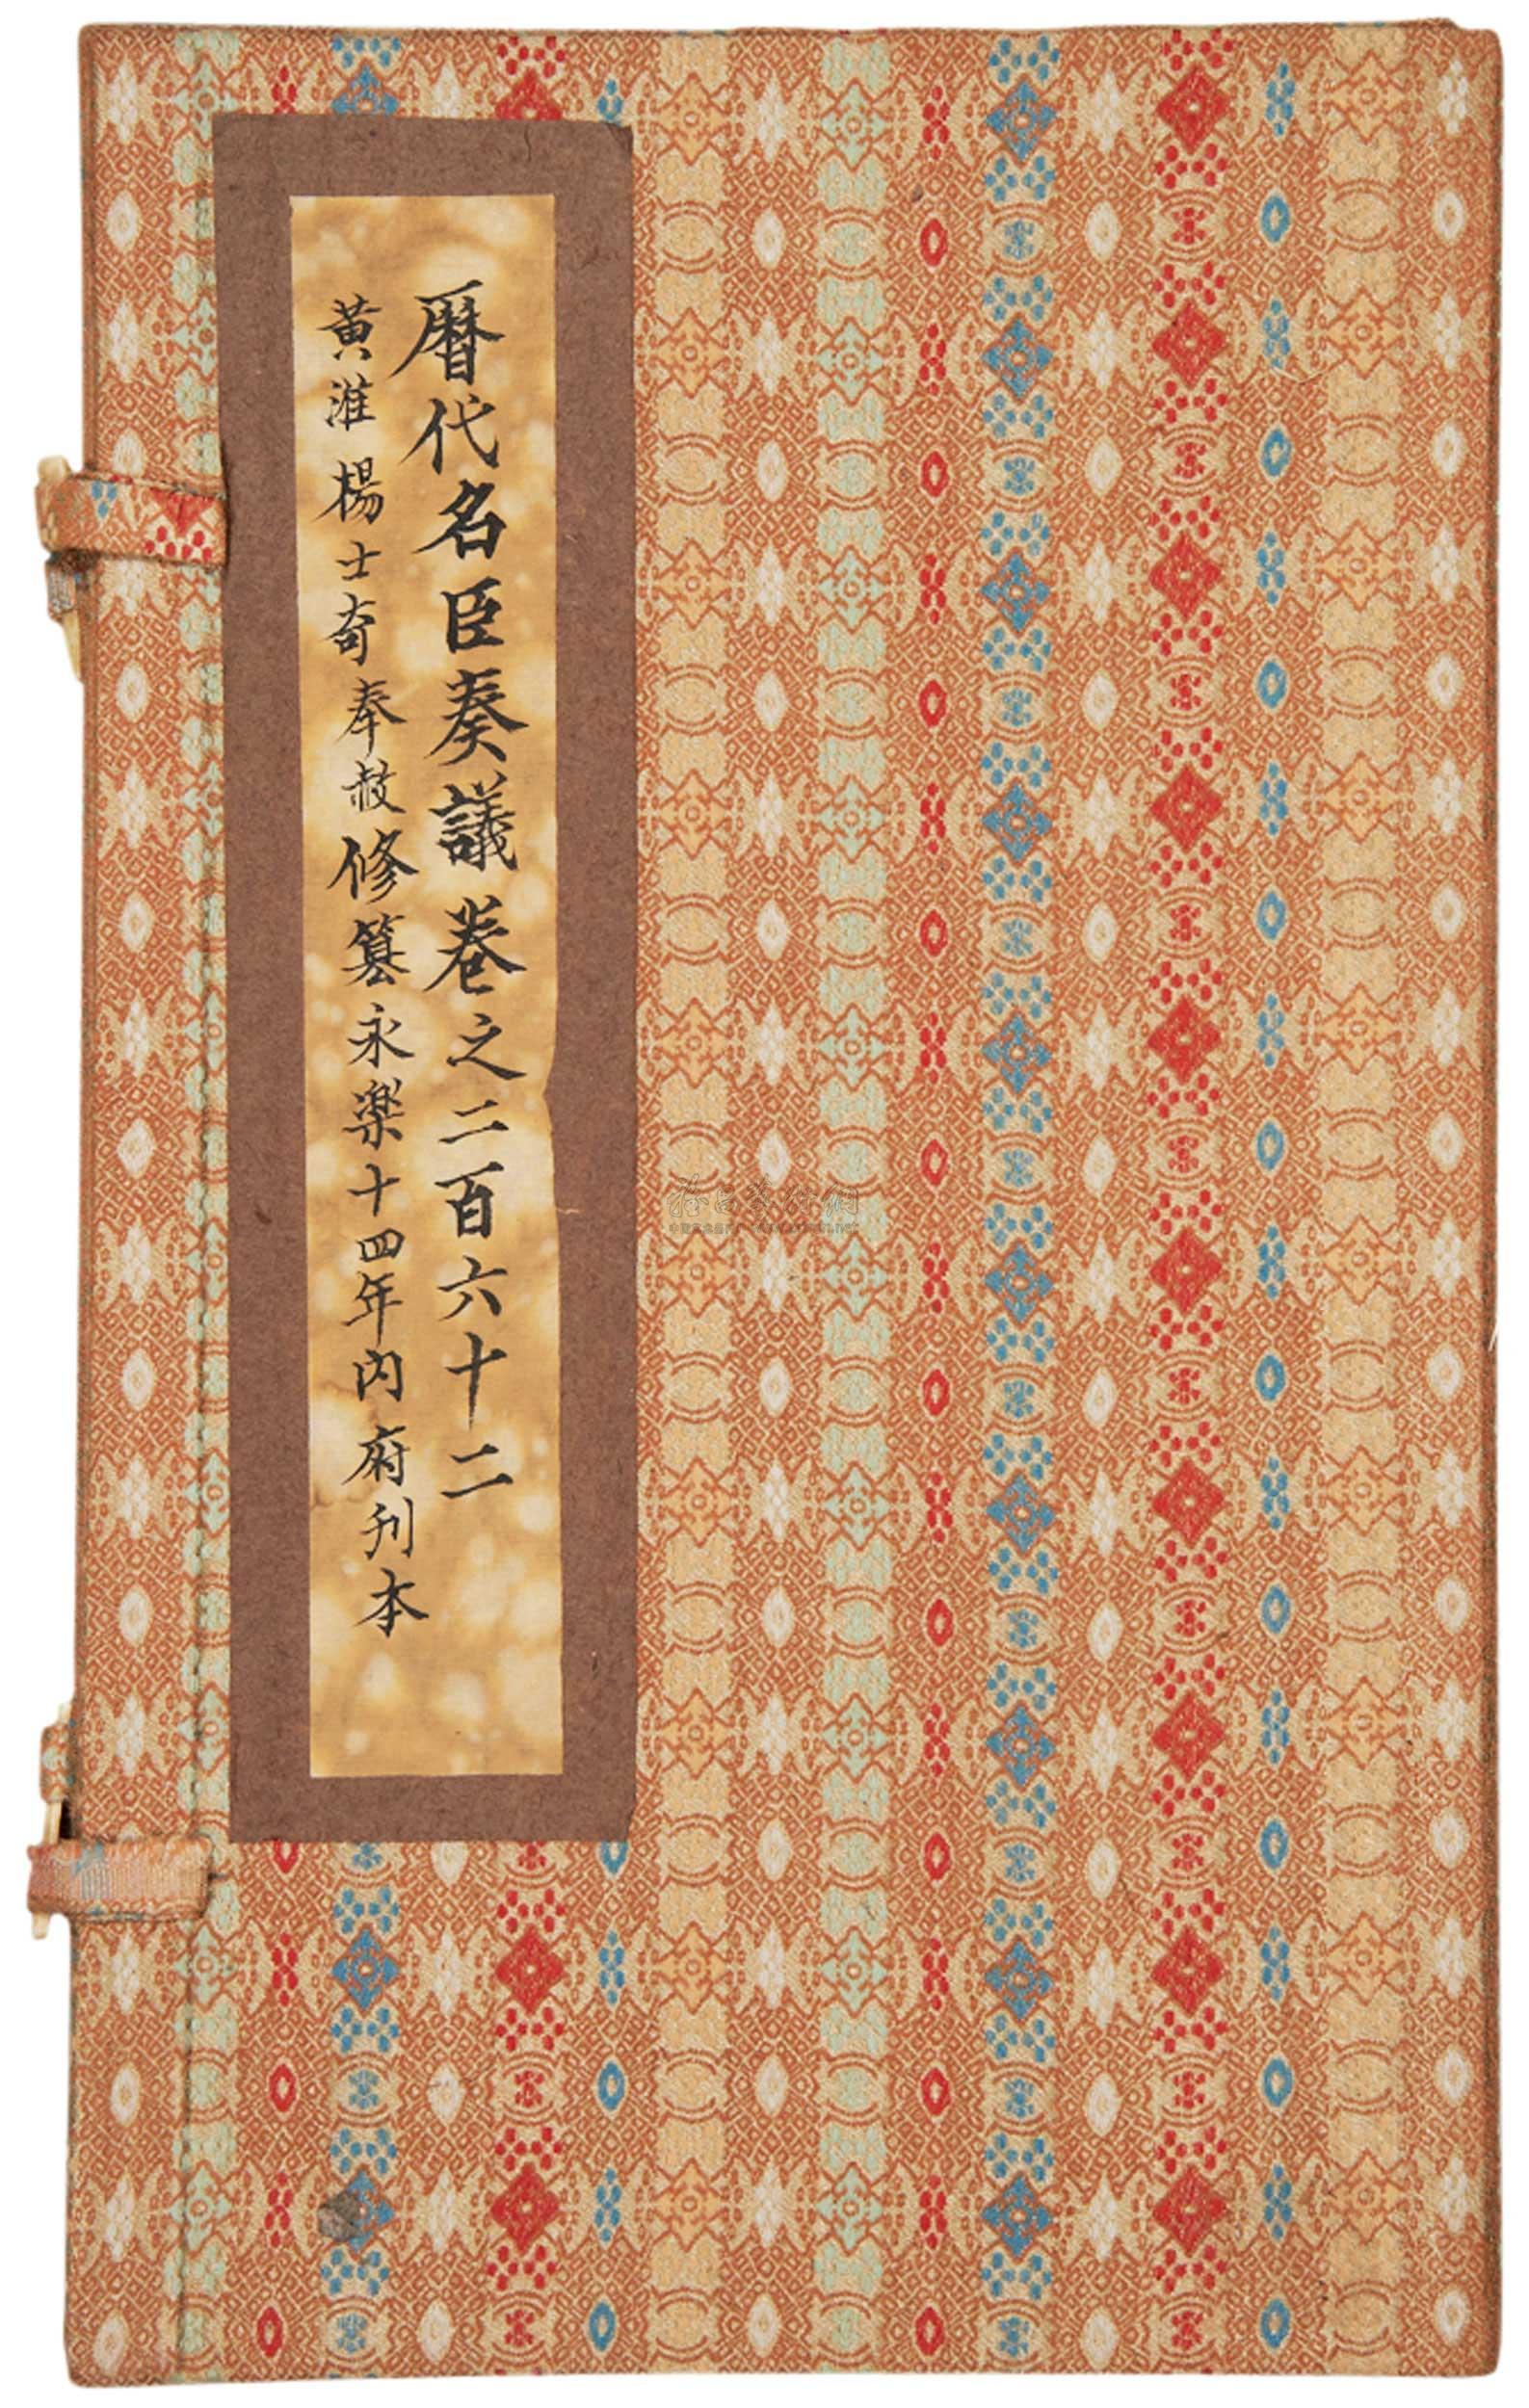 曆代名臣奏議卷之二百六十二
黃淮楊士奇奉敕修纂永樂十四年內府刊本